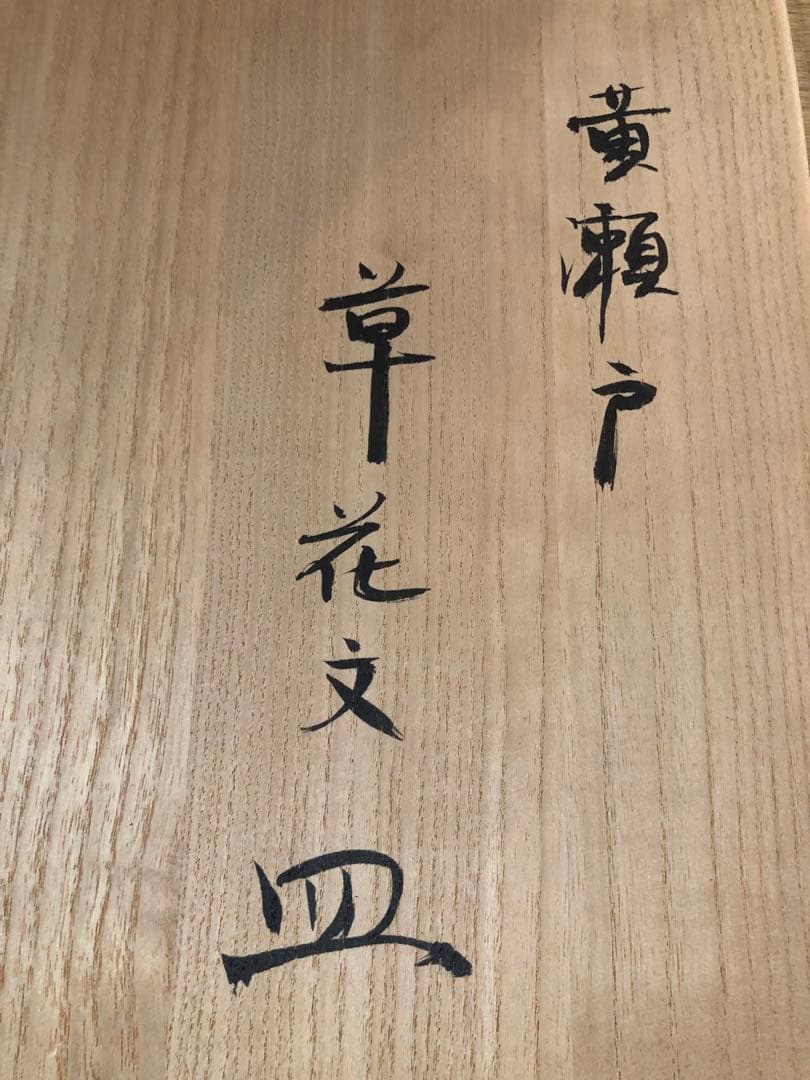 黄瀬戸
草花文皿